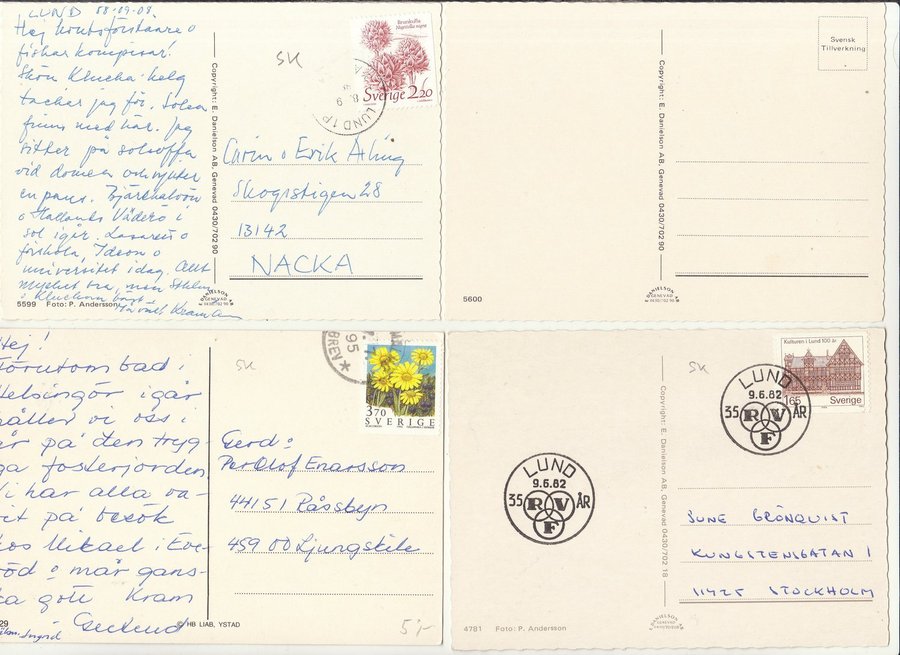 LUND 88-09-08
Hej
fiskar kompisar!
Skön Klucka-helg
tackar jag för. Solen
finns med här. Jag
sitter på solsoffa
vid domen och njuter
en paus. Bjärehalvön
o Hallands Väderö i
sol igår. Lasarett o
förskola, Ideon o
universitet idag. Allt
mycket bra, men
5599 Foto: P. Andersson
Copyright: E. Danielson AB, Genevad 0430/702 90
DANIELSON AB
GENEVAD
0430/702 90
SK
Brunkulla
Nigritella nigra
Sverige 2.20
LUND 1P
Carin o Erik Arling
Skogsstigen 28
13142
NACKA
Svensk
Tillverkning
Copyright: E. Danielson AB, Genevad 0430/702 90
5600
DANIELSON AB
GENEVAD
0430/702 90
Hej!
Förutom bad i
Helsingör igår
håller vi oss i
är på den tryg-
ga fosterjorden
Vi har alla va-
rit på besök
hos Mikael i Eve-
röd o mår gans-
ka gott Kram
Gertrud
Ingrid
29
© HB LIAB, YSTAD
SK
95
BREV
3.70
SVERIGE
Gerd o
Per Olof Enarsson
44151 Råssbyn
459 00 Ljungskile
5:-
SK
Kulturen i Lund 100 år
1.65 Sverige
LUND
9.6.82
35 RVF ÅR
LUND
9.6.82
35 RVF ÅR
Copyright: E. Danielson AB, Genevad 0430/702 18
SUNE GRÖNQUIST
KUNGSTENSGATAN 1
11425 STOCKHOLM
4781 Foto: P. Andersson
DANIELSON AB
GENEVAD